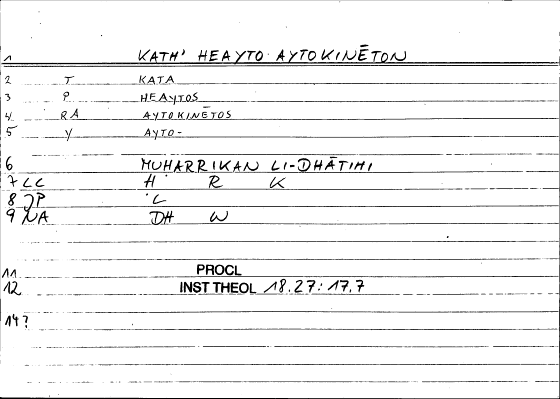 1 KATH' HEAYTO AYTOKINĒTON
2 T KATA
3 P HEAYTOS
4 RA AYTOKINĒTOS
5 Y AYTO-
6 MUHARRIKAN LI-DHĀTIHI
7 LC Ḥ R K
8 JP L
9 NA DH W
11 PROCL
12 INST THEOL 18.27: 17.7
14?